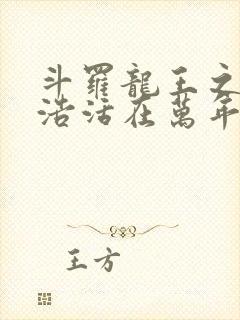 斗羅龍王之
浩活在萬年
王方